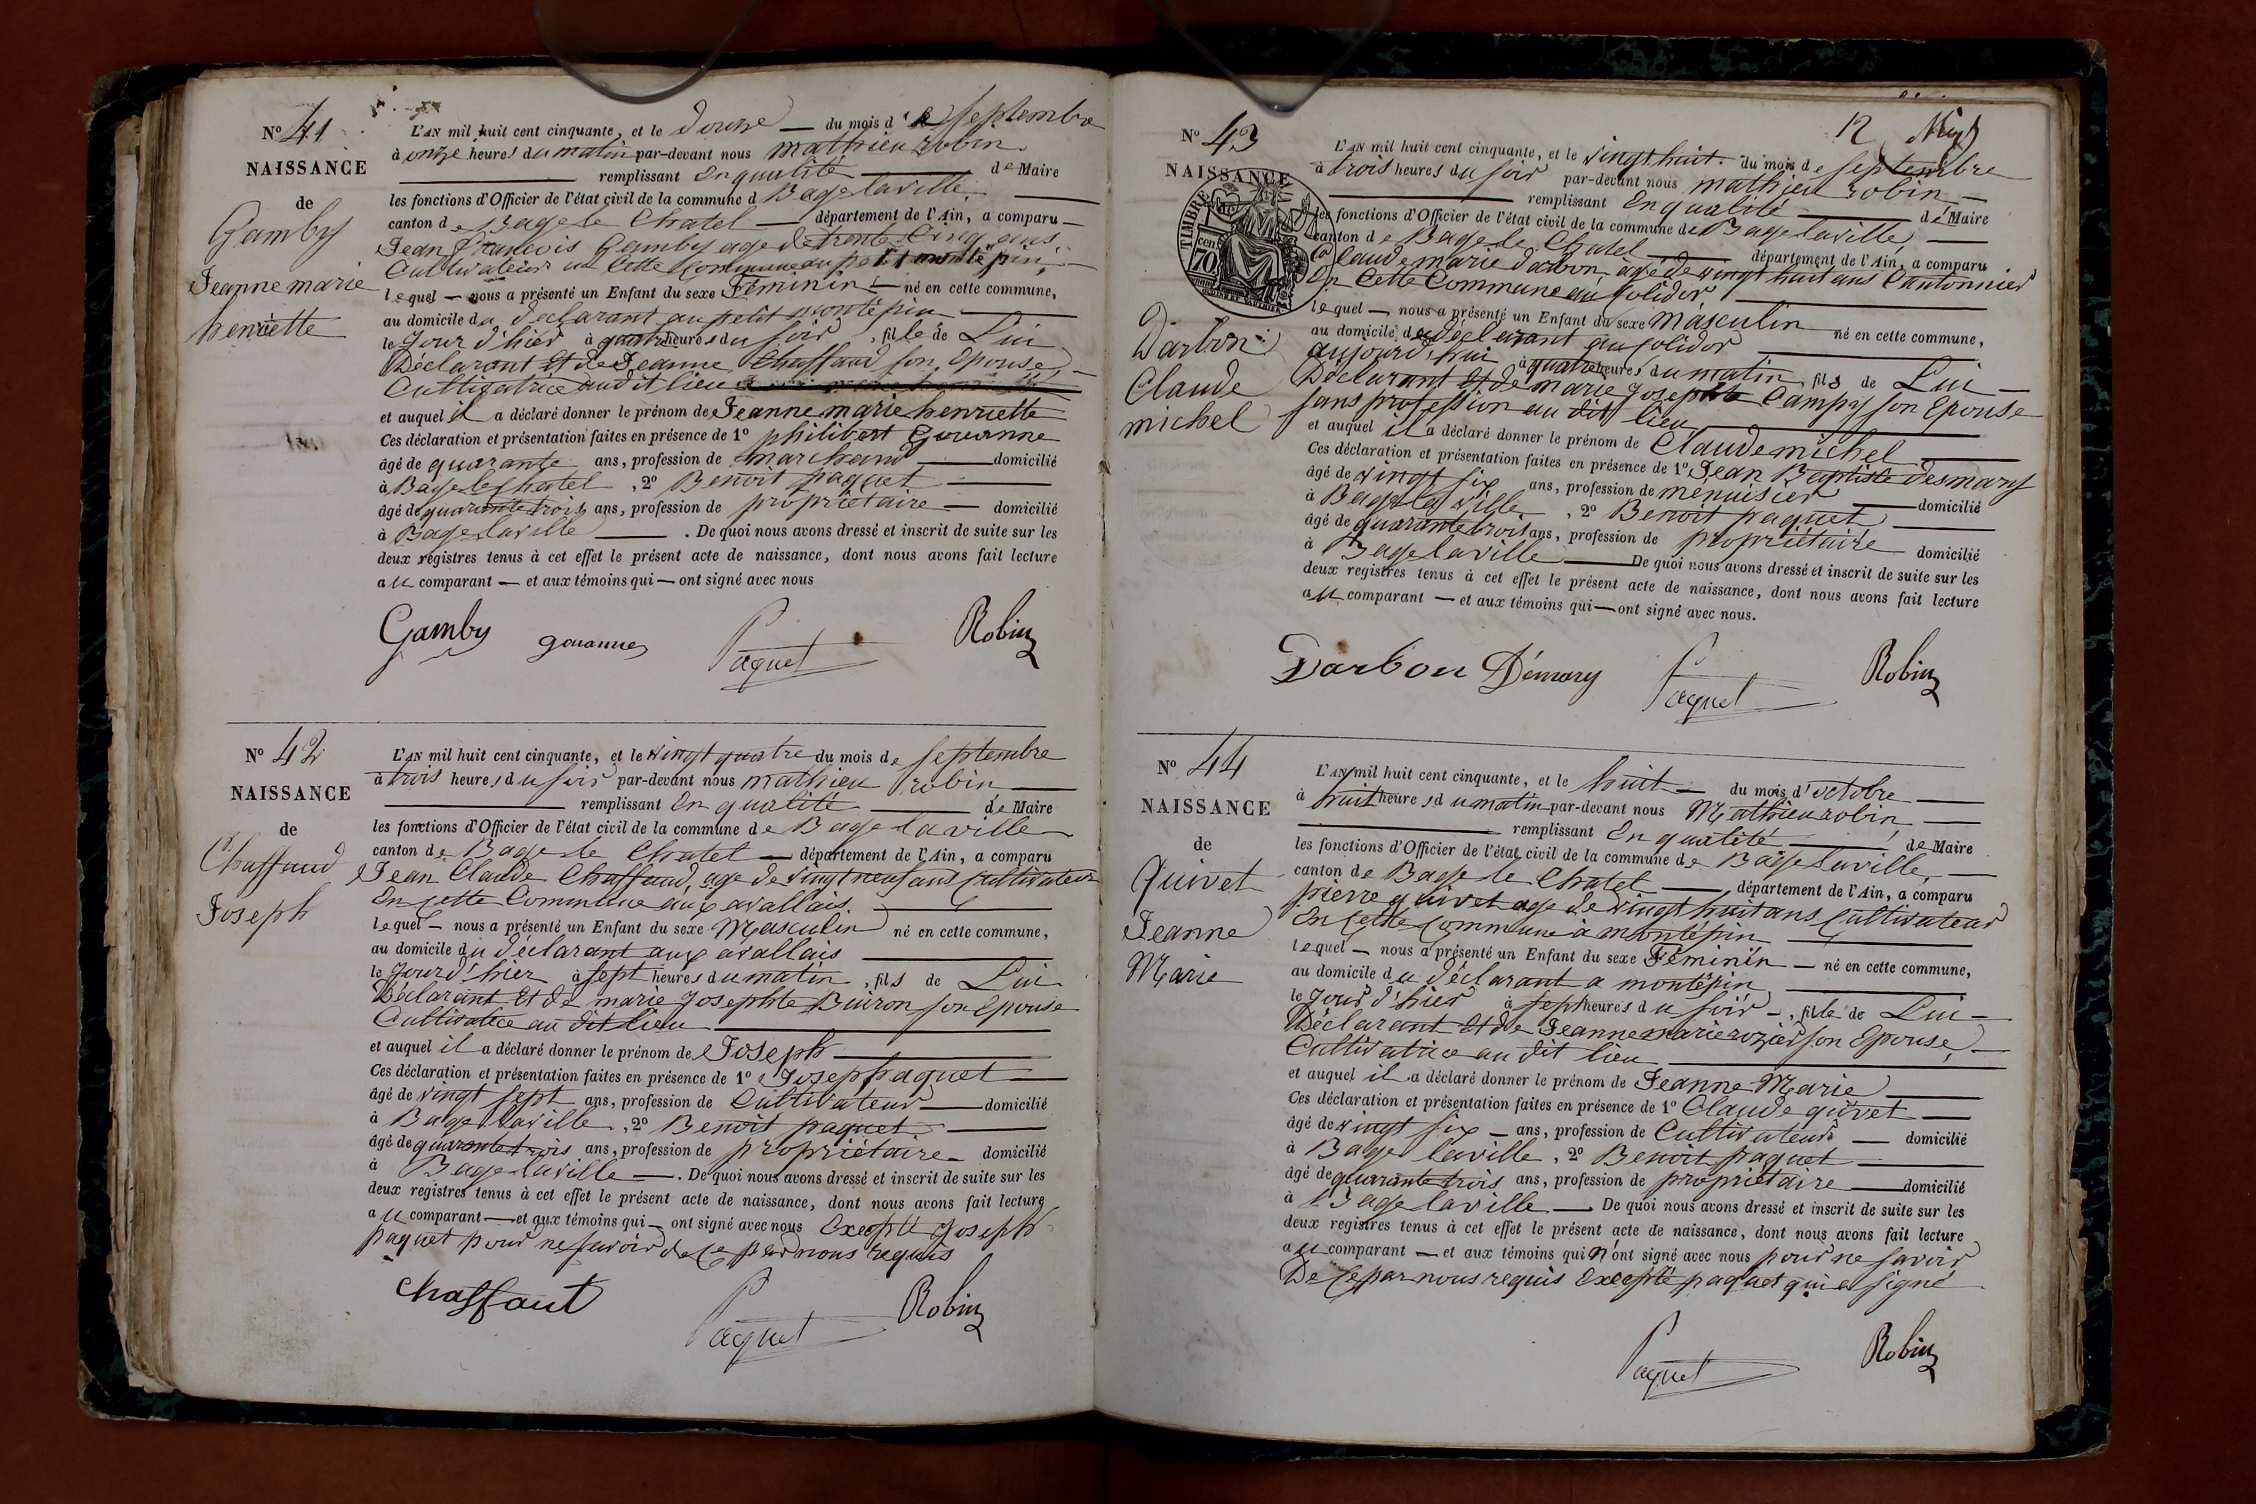 N° 41
NAISSANCE
de
Gamby
Jeanne marie
henriette
L'AN mil huit cent cinquante, et le douze — du mois de Septembre
à onze heures du matin par-devant nous mathieu robin
remplissant En qualité de Maire
les fonctions d'Officier de l'état civil de la commune d Bagelaville
canton de Bage le Chatel — département de l'Ain, a comparu
Jean francois Gamby age de trente Cinq ans
Cultivateur en Cette Commune au petit montépin
lequel — nous a présenté un Enfant du sexe Féminin — né en cette commune,
au domicile du déclarant au petit montépin
le Jour d'hier à quatre heures du soir, fille de Lui
Déclarant Et de Jeanne Chaffaud son Epouse
Cultivatrice audit lieu
et auquel il a déclaré donner le prénom de Jeanne marie henriette
Ces déclaration et présentation faites en présence de 1° philibert Gouanne
âgé de quarante ans, profession de marchand domicilié
à Bage le Chatel, 2° Benoit paquet
âgé de quarante trois ans, profession de propriétaire — domicilié
à Bage laville. De quoi nous avons dressé et inscrit de suite sur les
deux registres tenus à cet effet le présent acte de naissance, dont nous avons fait lecture
au comparant — et aux témoins qui — ont signé avec nous
Gamby gouanne Paquet Robin
N° 42
NAISSANCE
de
Chaffaud
Joseph
L'AN mil huit cent cinquante, et le vingt quatre du mois de Septembre
à trois heures du soir par-devant nous mathieu robin
remplissant En qualité de Maire
les fonctions d'Officier de l'état civil de la commune de Bage laville
canton de Bage le Chatel — département de l'Ain, a comparu
Jean Claude Chaffaud, age de vingt neuf ans Cultivateur
En cette Commune aux avallais
lequel — nous a présenté un Enfant du sexe Masculin né en cette commune,
au domicile du déclarant aux avallais
le Jour d'hier à sept heures du matin, fils de Lui
Déclarant Et de marie Josephte Buiron son Epouse
Cultivatrice au dit lieu
et auquel il a déclaré donner le prénom de Joseph
Ces déclaration et présentation faites en présence de 1° Joseph paquet
âgé de vingt sept ans, profession de Cultivateur — domicilié
à Bage laville, 2° Benoit paquet
âgé de quarante trois ans, profession de propriétaire — domicilié
à Bage laville —. De quoi nous avons dressé et inscrit de suite sur les
deux registres tenus à cet effet le présent acte de naissance, dont nous avons fait lecture
au comparant — et aux témoins qui — ont signé avec nous Excepté Joseph
paquet pour ne savoir de ce par nous requis
Chaffaut Paquet Robin
12
N° 43
NAISSANCE
de
TIMBRE
cen 70
Darbon
Claude
michel
L'AN mil huit cent cinquante, et le vingt huit du mois de Septembre
à trois heures du soir par-devant nous mathieu robin
remplissant En qualité de Maire
les fonctions d'Officier de l'état civil de la commune de Bage laville
canton de Bage le Chatel département de l'Ain, a comparu
Claude marie darbon, âgé de vingt huit ans Cantonnier
En Cette Commune au Colidor
lequel — nous a présenté un Enfant du sexe Masculin né en cette commune,
au domicile du déclarant au Colidor
aujourd'hui à quatre heures du matin, fils de Lui
Déclarant Et de marie Josephte Campy son Epouse
sans profession au dit lieu
et auquel il a déclaré donner le prénom de Claude michel
Ces déclaration et présentation faites en présence de 1° Jean Baptiste desmary
âgé de vingt six ans, profession de menuisier domicilié
à Bage la ville, 2° Benoit paquet
âgé de quarante trois ans, profession de propriétaire domicilié
à Bage laville — De quoi nous avons dressé et inscrit de suite sur les
deux registres tenus à cet effet le présent acte de naissance, dont nous avons fait lecture
au comparant — et aux témoins qui — ont signé avec nous.
Darbon Démary Paquet Robin
N° 44
NAISSANCE
de
Quivet
Jeanne
Marie
L'AN mil huit cent cinquante, et le huit — du mois d'octobre
à huit heures du matin par-devant nous Mathieu robin
remplissant En qualité de Maire
les fonctions d'Officier de l'état civil de la commune de Bage laville
canton de Bage le Chatel — département de l'Ain, a comparu
pierre quivet age de vingt huit ans Cultivateur
En Cette Commune à montépin
lequel — nous a présenté un Enfant du sexe Féminin — né en cette commune,
au domicile du déclarant a montépin
le Jour d'hier à sept heures du soir —, fille de Lui
Déclarant Et de Jeanne marie rozier son Epouse
Cultivatrice au dit lieu
et auquel il a déclaré donner le prénom de Jeanne Marie
Ces déclaration et présentation faites en présence de 1° Claude quivet
âgé de vingt six — ans, profession de Cultivateur — domicilié
à Bage laville, 2° Benoit paquet
âgé de quarante trois ans, profession de propriétaire domicilié
à Bage laville — De quoi nous avons dressé et inscrit de suite sur les
deux registres tenus à cet effet le présent acte de naissance, dont nous avons fait lecture
au comparant — et aux témoins qui n'ont signé avec nous pour ne savoir
De ce par nous requis Excepté paquet qui a signé
Paquet Robin